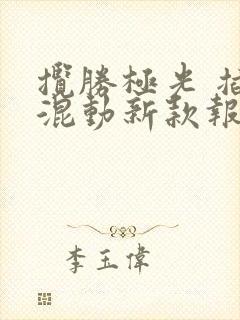 攬勝極光 插
混動新款報
李玉偉